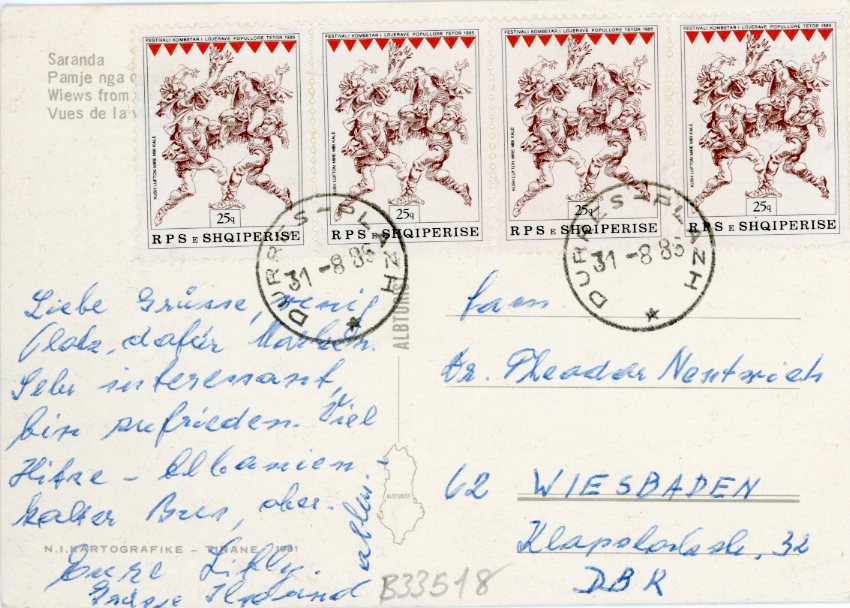 Saranda
Pamje nga
Wiews from
Vues de la
FESTIVALI KOMBETAR I LOJERAVE POPULLORE TETOR 1985
KUSH LUFTON MIRE MBI KALE
25q
RPS E SHQIPERISE
FESTIVALI KOMBETAR I LOJERAVE POPULLORE TETOR 1985
KUSH LUFTON MIRE MBI KALE
25q
RPS E SHQIPERISE
FESTIVALI KOMBETAR I LOJERAVE POPULLORE TETOR 1985
KUSH LUFTON MIRE MBI KALE
25q
RPS E SHQIPERISE
FESTIVALI KOMBETAR I LOJERAVE POPULLORE TETOR 1985
KUSH LUFTON MIRE MBI KALE
25q
RPS E SHQIPERISE
DURRES-PLAZH
31-8 86
DURRES-PLAZH
31-8 86
Liebe Grüsse, wenig
Platz, dafür Marken.
Sehr interessant,
bin zufrieden. Viel
Hitze - Albanien
kalter
Eure
Grüsse
ALBTURIST
ALBTURIST
N.I.KARTOGRAFIKE - TIRANE
Fam.
Dr. Theodor Nentwich
62 WIESBADEN
32
DBR
B33518